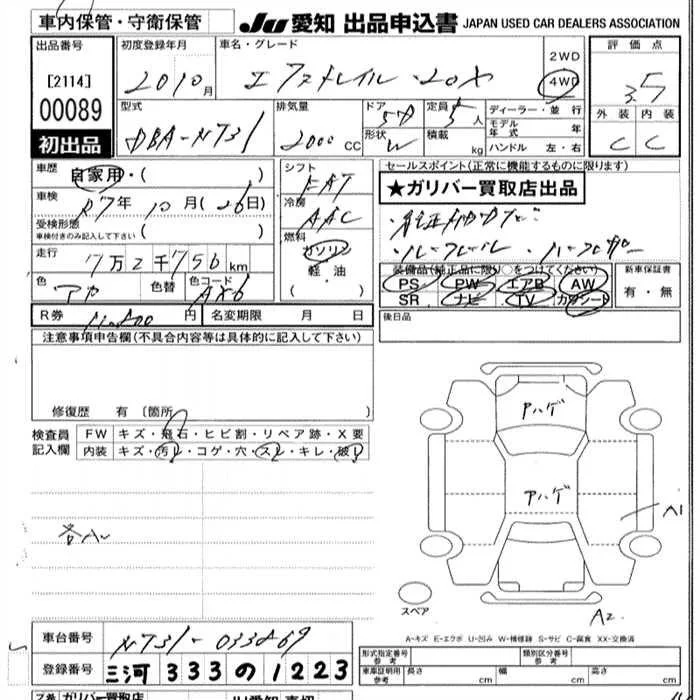 車内保管・守衛保管
JU 愛知 出品申込書 JAPAN USED CAR DEALERS ASSOCIATION
出品番号
[2114]
00089
初出品
初度登録年月
2010 月
車名・グレード
エクストレイル・20X
2WD
4WD
評価点
3.5
外装 内装
C C
型式
DBA-NT31
排気量
2000 CC
ドア 5D
形状 W
定員 5人
積載 kg
ディーラー・並行
モデル年式 年
ハンドル 左・右
車歴
自家用・( )
車検
R7年 10月(26日)
受検形態
車検付きのみ記入して下さい ( )
走行
7万2千756km
色 アカ 色替 色コード AX6
シフト
FAT
冷房
AAC
燃料
ガソリン
軽油
・( )
セールスポイント(正常に機能するものに限ります)
★ガリバー買取店出品
・ルーフレール
装備品(純正品に限り○をつけてください)
PS PW エアB AW
SR ナビ TV カワシート
新車保証書
有・無
後日品
R券 円 名変期限 月 日
注意事項申告欄(不具合内容等は具体的に記入して下さい)
修復歴 有 〔箇所 〕
検査員
記入欄
FW キズ・飛石・ヒビ割・リペア跡・X要
内装 キズ・汚レ・コゲ・穴・スレ・キレ・破レ
アハゲ
アハゲ
A1
A2
スペア
A-キズ E-エクボ U-凹み W-補修跡 S-サビ C-腐食 XX-交換済
車台番号 NT31-033869
登録番号 三河 333 の 1223
形式指定番号
参考
類別区分番号
参考
車庫証明用
参考
長さ cm 幅 cm 高さ cm
ガリバー買取店